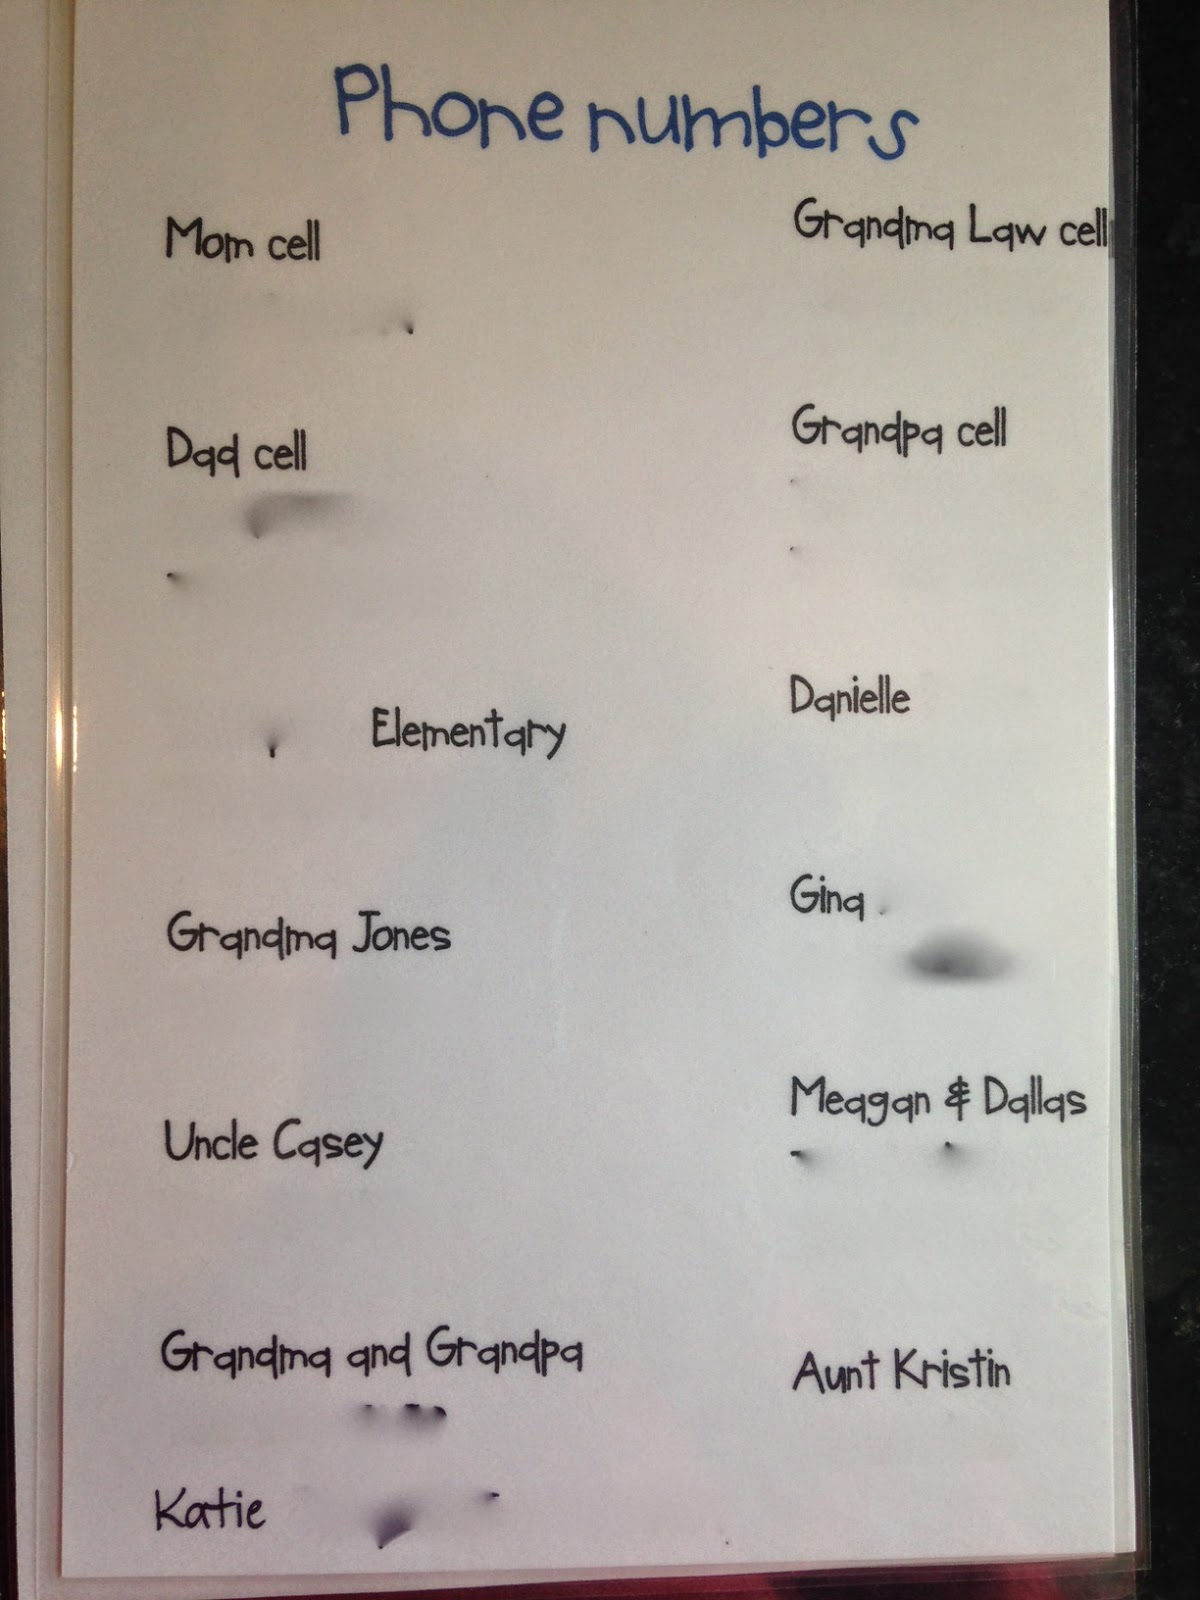 Phone numbers
Mom cell
Dad cell
Elementary
Grandma Jones
Uncle Casey
Grandma and Grandpa
Katie
Grandma Law cell
Grandpa cell
Danielle
Gina
Meagan & Dallas
Aunt Kristin